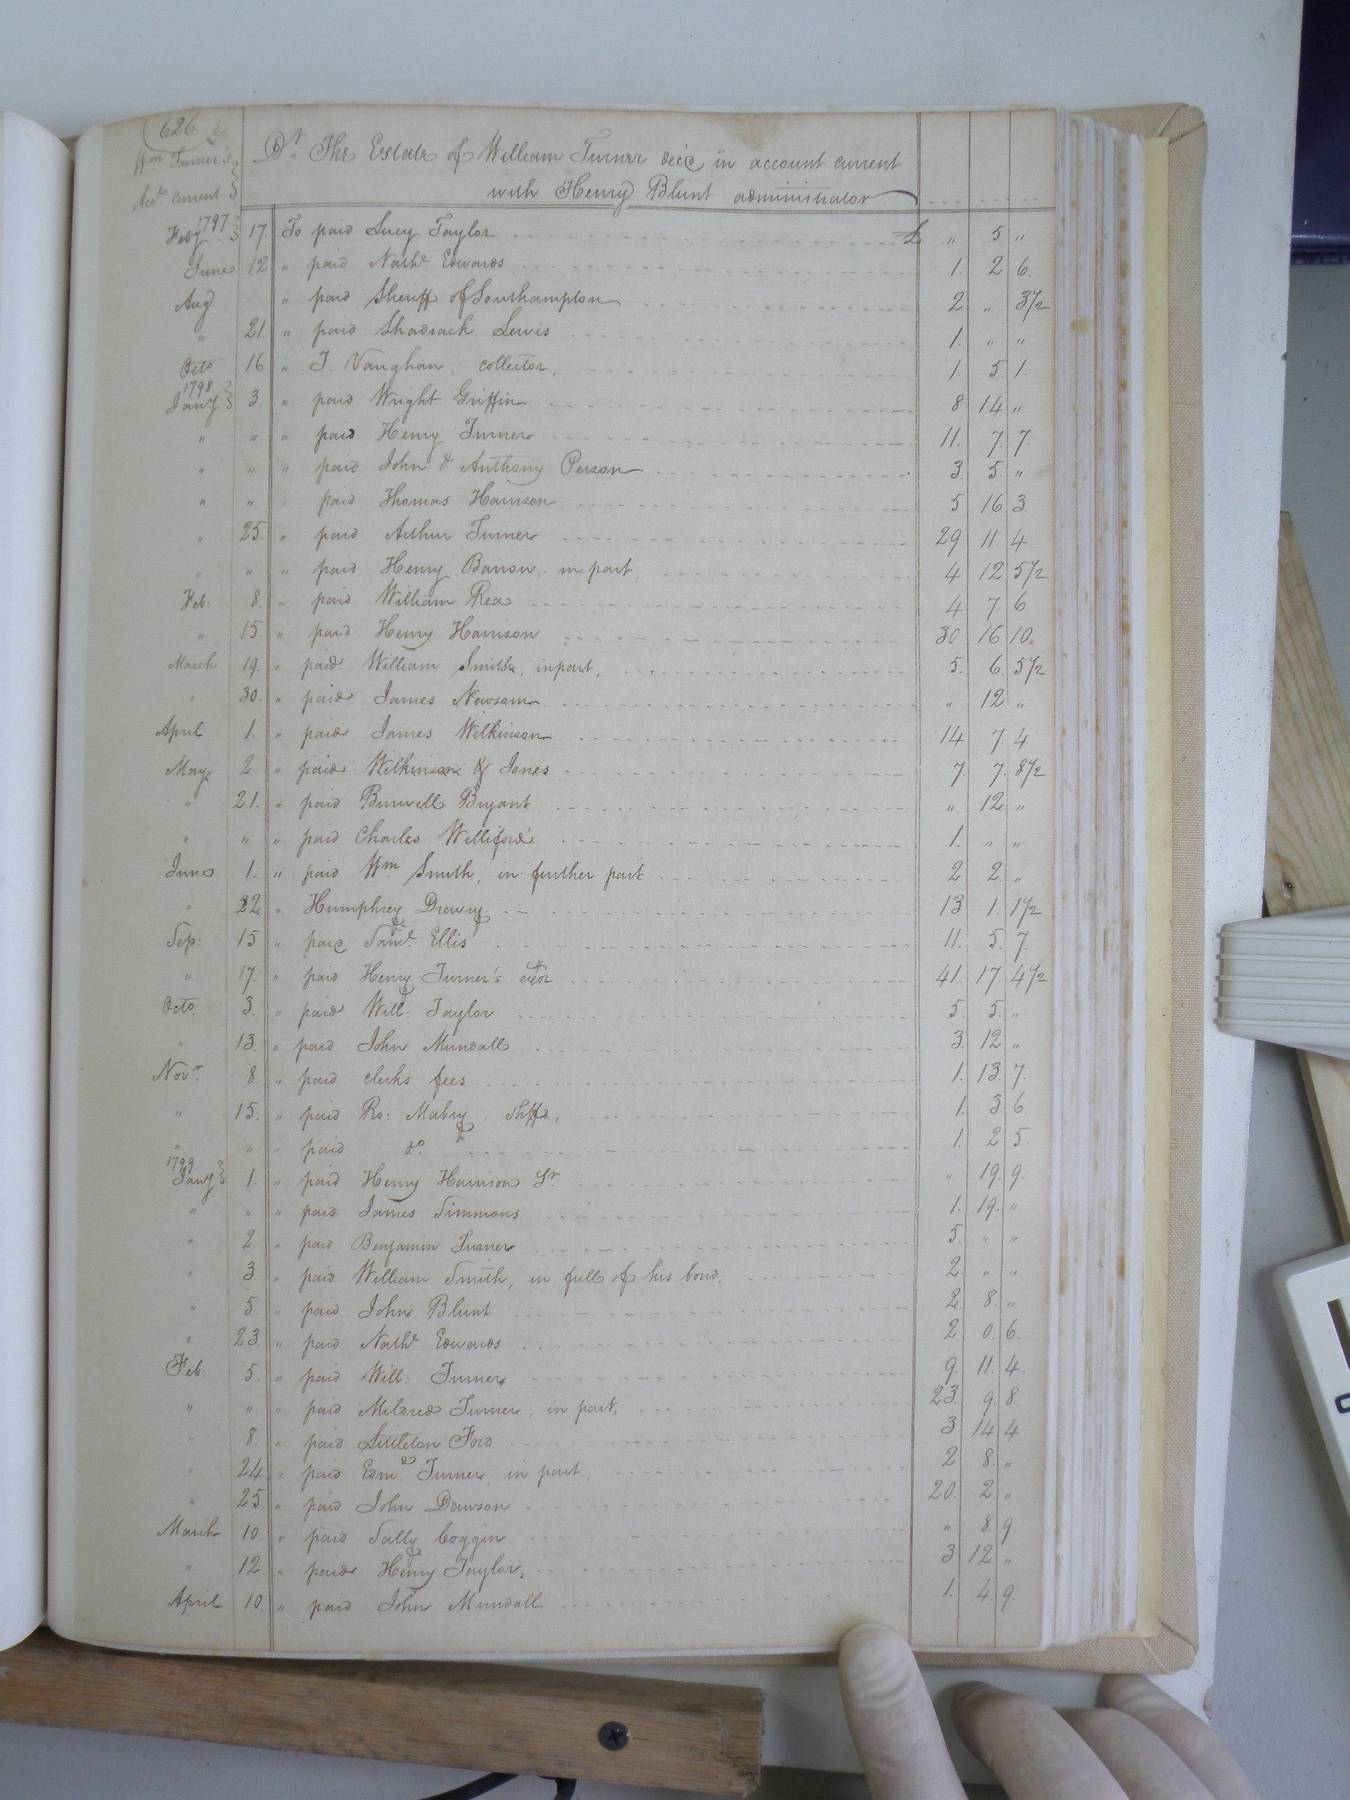 626
Wm Turner's
Acc. Current
Dr. The Estate of William Turner decd in account current
with Henry Blunt administrator
1797 Feby 17. To paid Lucy Taylor £ " 5 "
June 12 " paid Nathl Edwards 1. 2 6.
Aug. " paid Sheriff of Southampton 2 " 3 1/2
" 21 " paid Shadrack Lewis 1. " "
Octo 16 " J. Vaughan, collector, 1 5 1.
1798 Jany 3. " paid Wright Griffin 8 14 "
" " " paid Henry Turner 11. 7. 7
" " " paid John & Anthony Person 3 5. "
" " paid Thomas Harrison 5 16 3
" 25. " paid Arthur Turner 29 11 4
" " " paid Henry Barron, in part, 4 12 5 1/2
Feb: 8. " paid William Rea 4 7 6
" 15 " paid Henry Harrison 30 16 10.
March 19. " paid William Smith, in part, 5. 6. 5 1/2
" 30. " paid James Newsom " 12 "
April 1. " paid James Wilkinson 14 7. 4
May 2. " paid Wilkinson & Jones 7. 7. 8 1/2
" 21. " paid Burwell Bryant " 12 "
" " " paid Charles Williford 1. " "
June 1. " paid Wm Smith, in further part 2 2. "
" 22 " Humphrey Drewry 13 1. 1 1/2
Sep: 15 " paid Saml. Ellis 11. 5. 7.
" 17. " paid Henry Turner's exor 41. 17. 4 1/2
Octo. 3. " paid Will: Taylor 5. 5. "
" 13. " paid John Mundall 3. 12 "
Novr. 8. " paid clerks fees 1. 13. 7.
" 15. " paid Ro: Mabry, shff, 1. 3. 6
" " " paid do. " 1. 2 5.
1799 Jany 1. " paid Henry Harrison Sr. " 19. 9.
" " " paid James Simmons 1. 19. "
" 2 " paid Benjamin Turner 5. " "
" 3 " paid William Smith, in full of his bond, 2. " "
" 5. " paid John Blunt 2. 8. "
" 23. " paid Nathl Edwards 2 0. 6.
Feb: 5. " paid Will: Turner 9. 11. 4
" " " paid Mildred Turner, in part, 23. 9. 8.
" 8. " paid Littleton Ford 3 14 4
" 24 " paid Edmd Turner, in part, 2 8. "
" 25 " paid John Dawson 20. 2. "
March 10. " paid Sally Coggin " 8. 9.
" 12 " paid Henry Taylor, 3 12 "
April 10. " paid John Mundall 1. 4. 9.